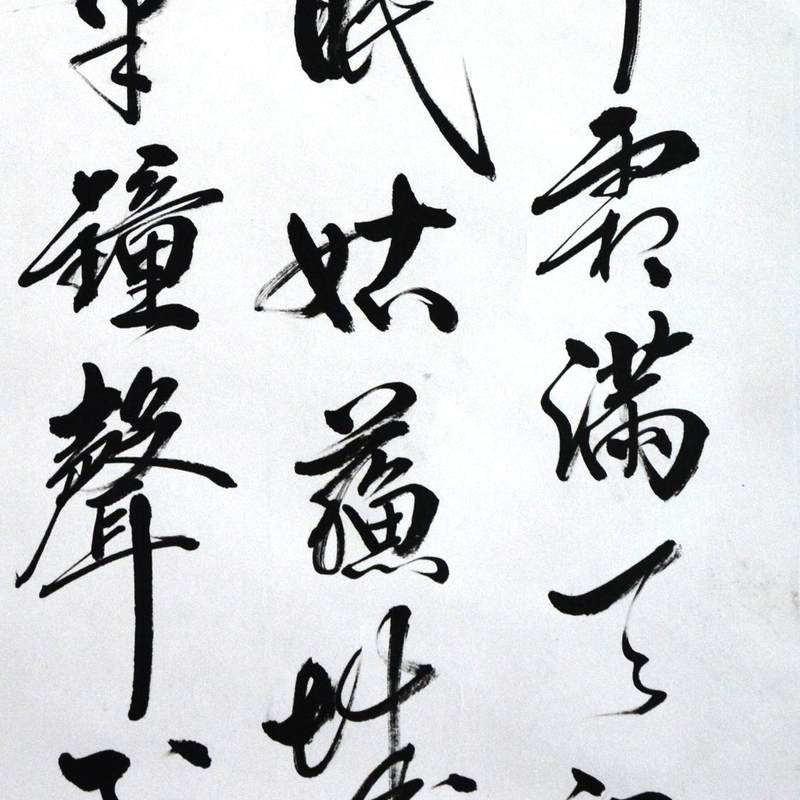 霜滿天
眠姑蘇城
半鐘聲